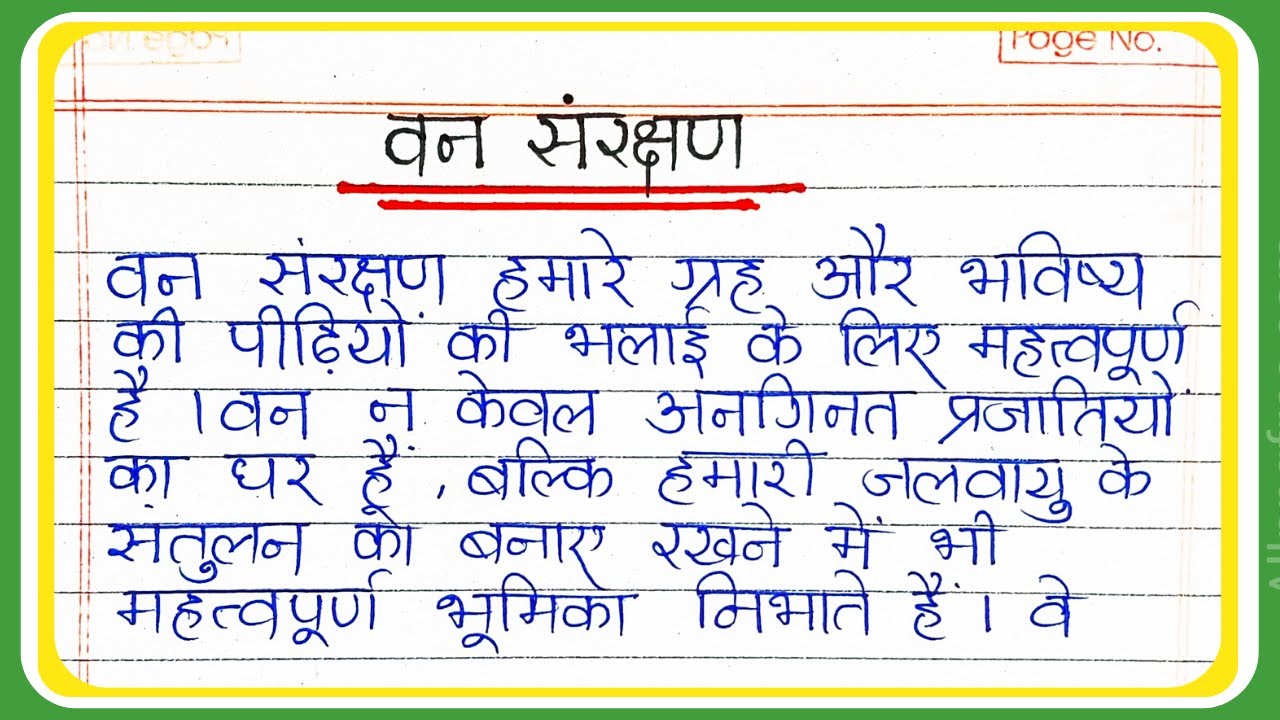 Page No.
वन संरक्षण
वन संरक्षण हमारे ग्रह और भविष्य
की पीढ़ियों की भलाई के लिए महत्वपूर्ण
है । वन न केवल अनगिनत प्रजातियों
का घर हैं , बल्कि हमारी जलवायु के
संतुलन को बनाए रखने में भी
महत्वपूर्ण भूमिका निभाते हैं । वे